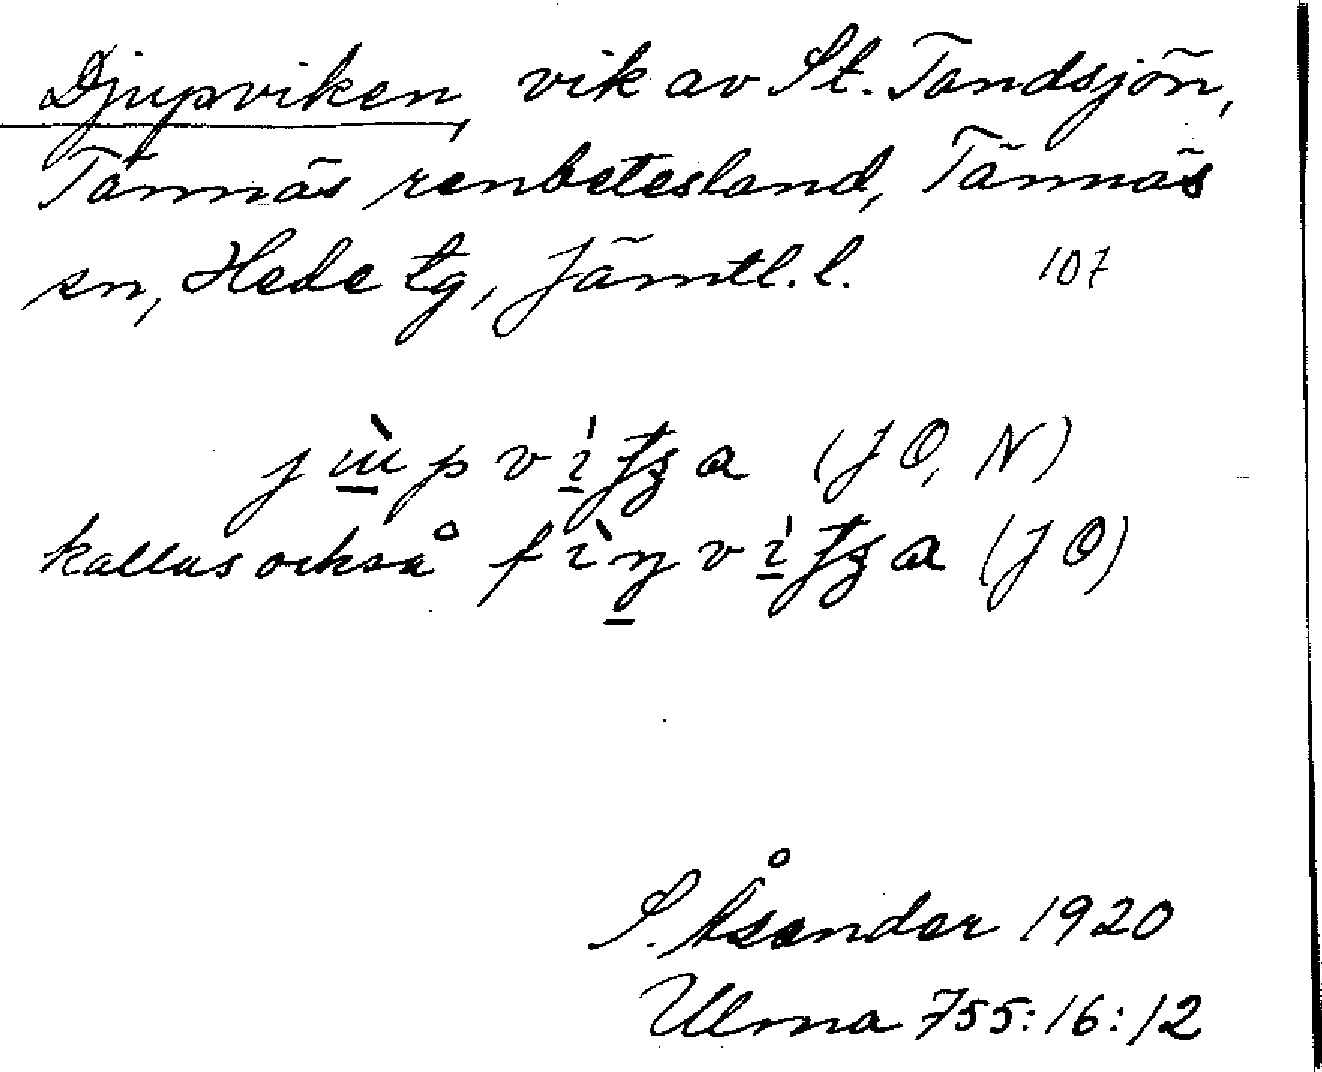 Djupviken, vik av St. Tandsjön,
Tännäs renbetesland, Tännäs
sn, Hede tg, Jämtl. l. 107
(JO, N)
kallas också (JO)
S. Åsander 1920
Ulma 755:16:12